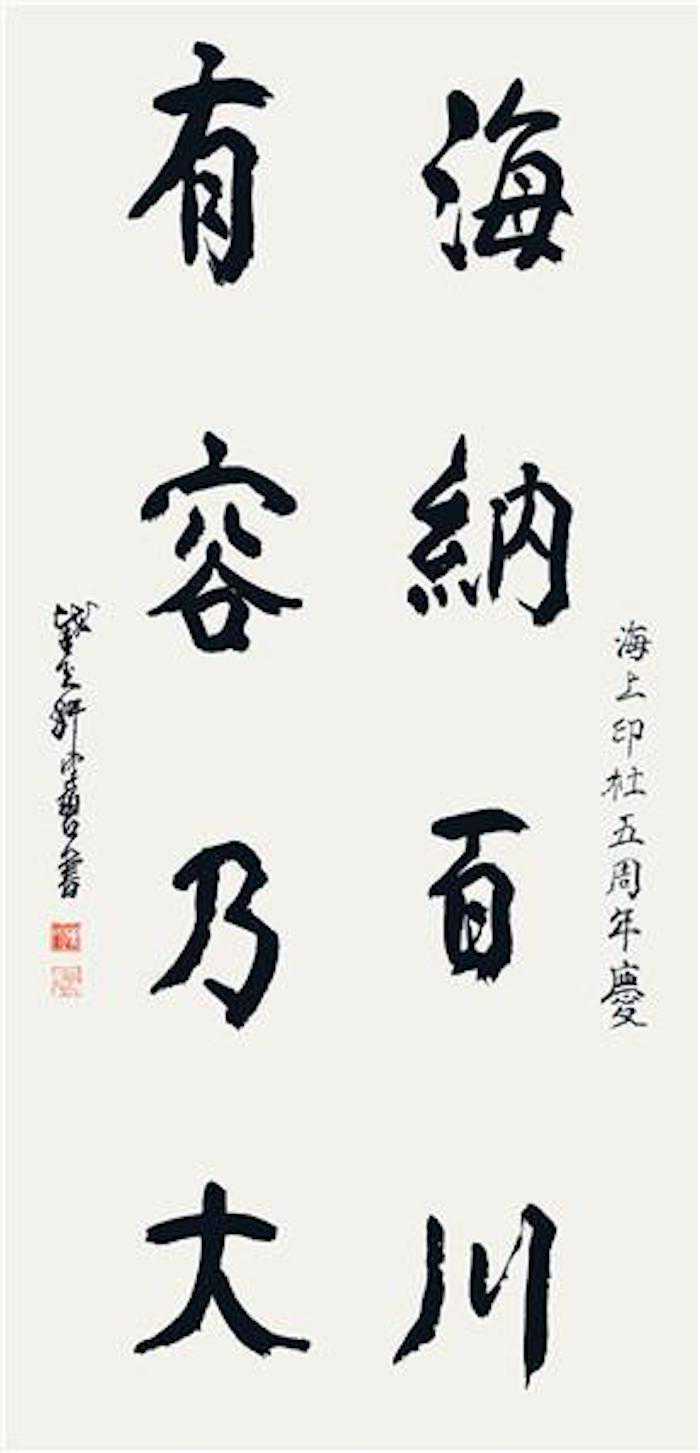 海上印社五周年慶
海納百川
有容乃大
書